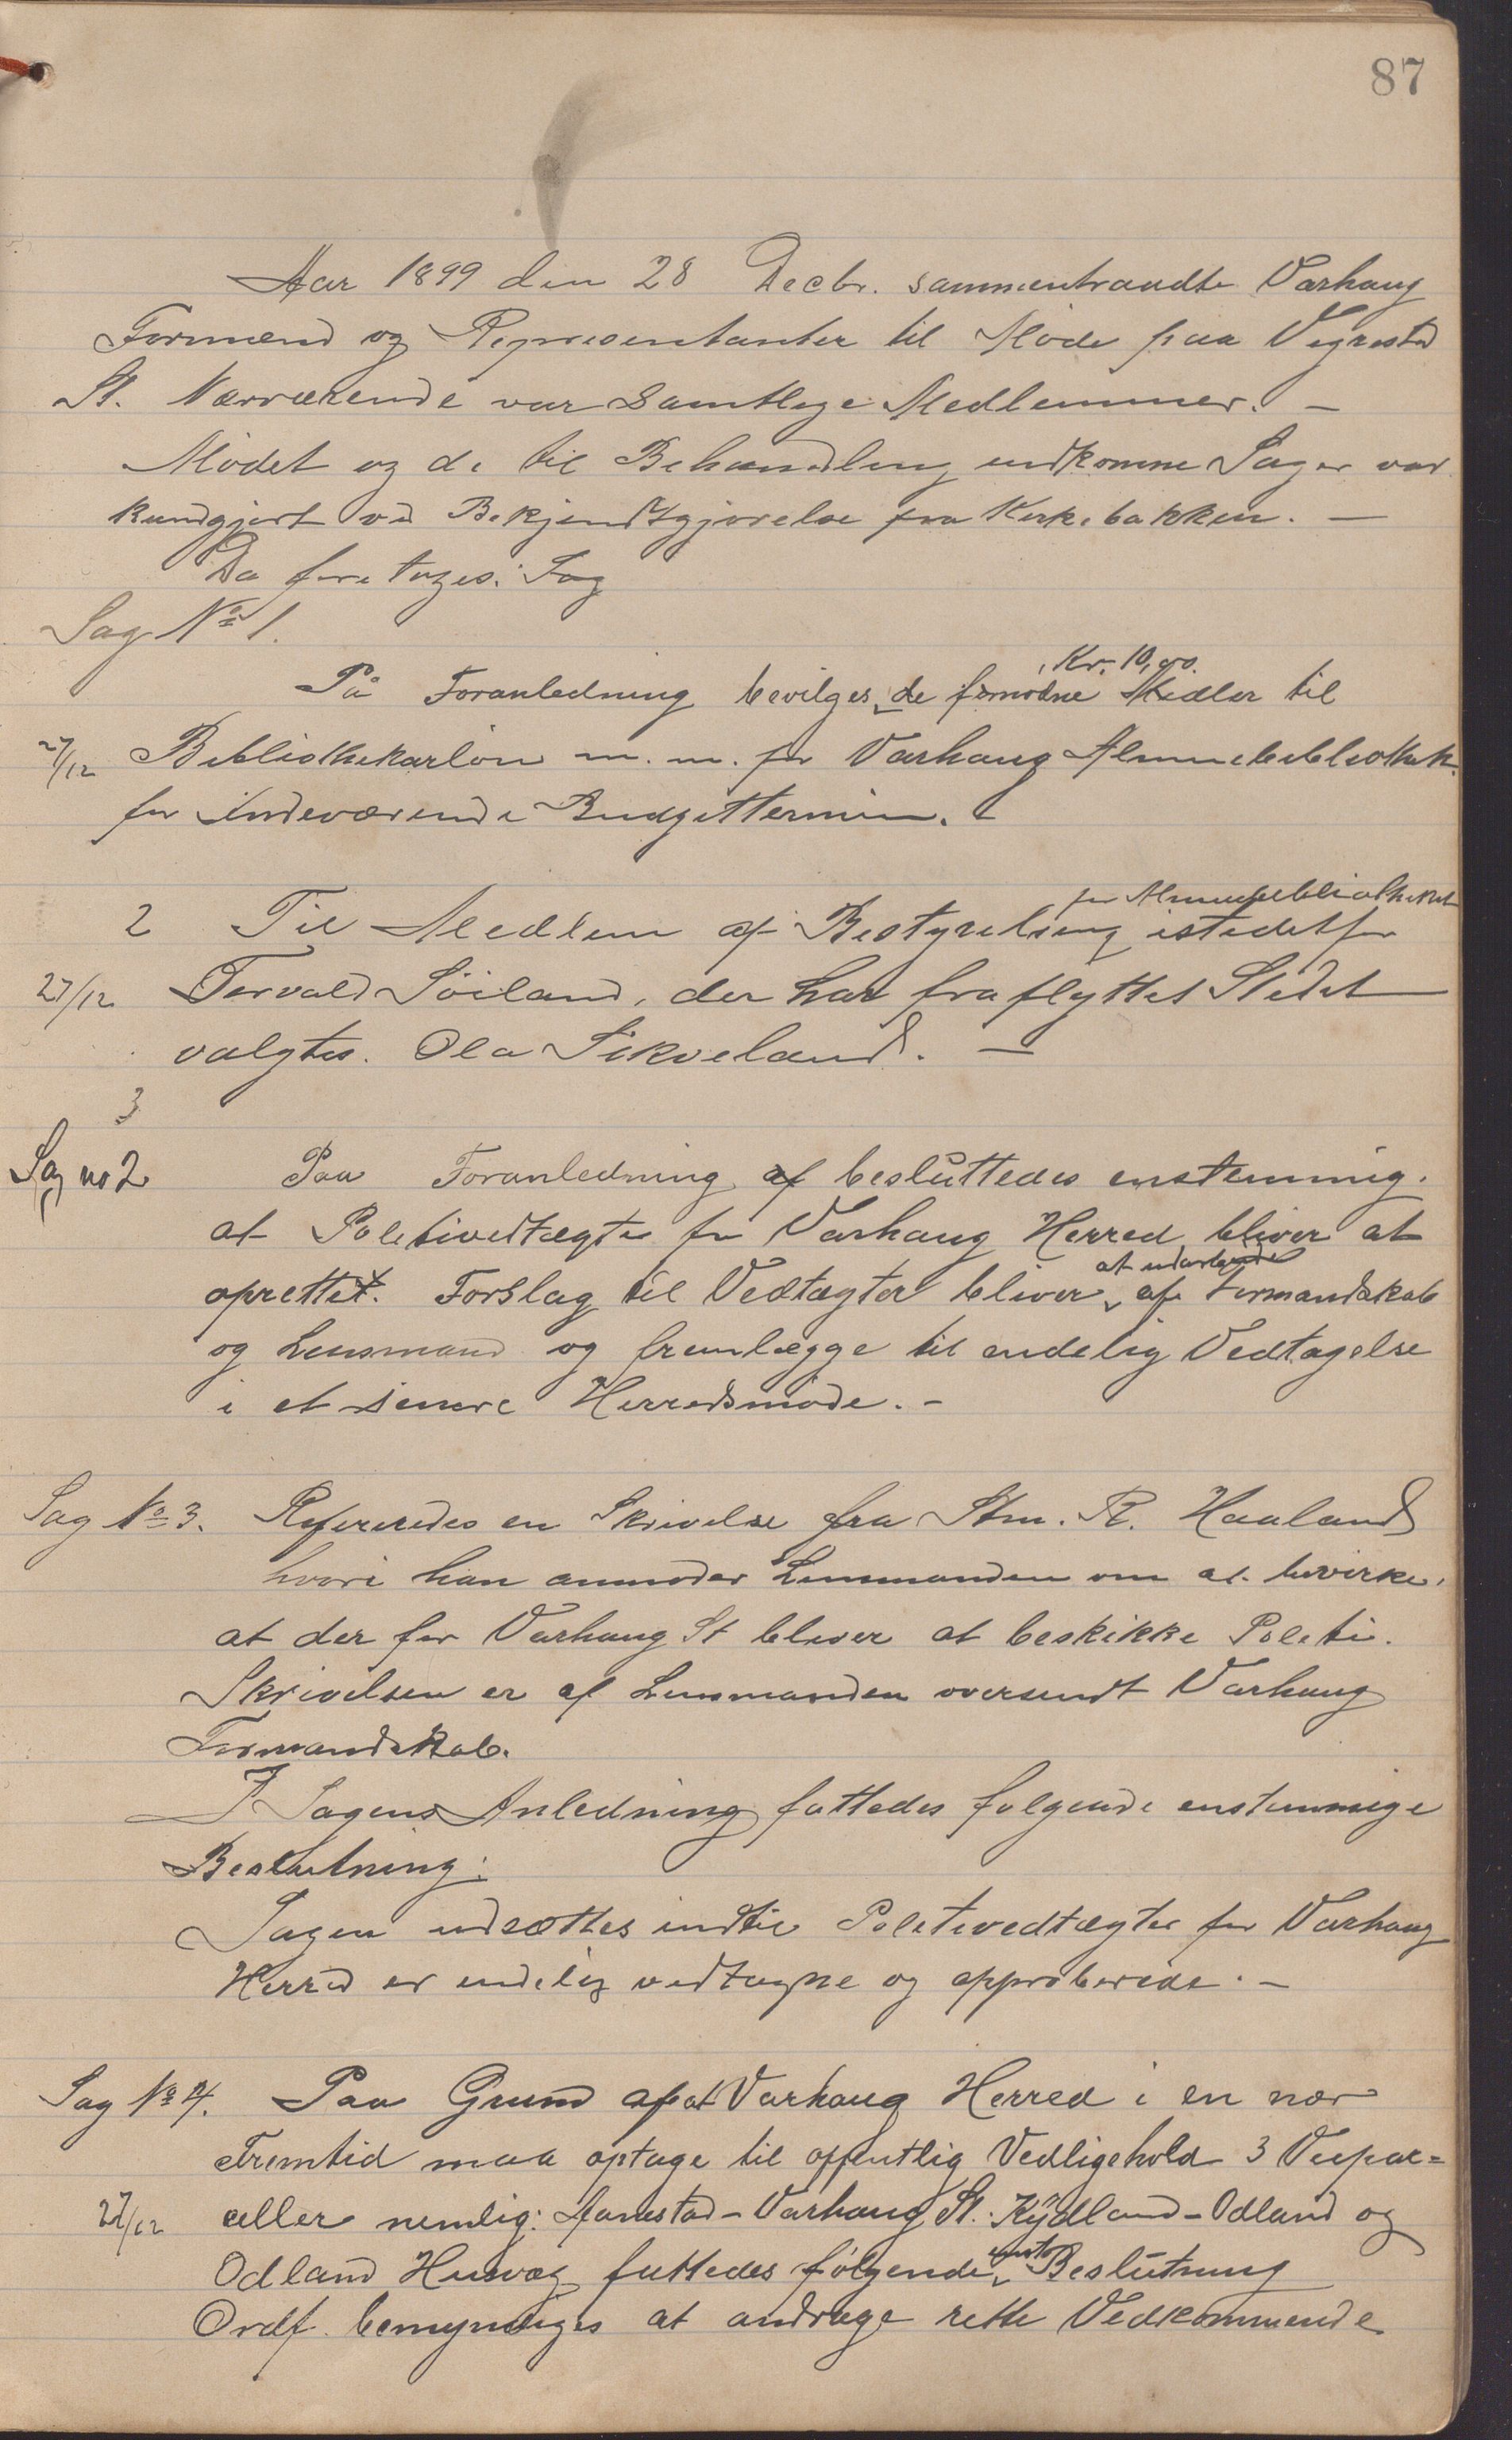 87
Aar 1899 den 28 Decbr. sammentraadte Varhaug
Formænd og Representanter til Møde paa Vigrestad
St. Nærværende var samtlige Medlemmer. —
Mødet og de til Behandling indkomne Sager var
kundgjort ved Bekjendtgjørelse fra Kirkebakken. —
Da foretoges: Sag
Sag No 1.
Kr. 10,00.
På Foranledning bevilges de fornødne Midler til
27/12 Bibliothekarløn m. m. for Varhaug Almuebibliothek
for indeværende Budgettermin.
for Almuebibliotheket
2 Til Medlem af Bestyrelsen istedetfor
27/12 Torvald Söiland, der har fraflyttet Stedet
valgtes. Ola Sikveland. —
3
Sag no 2 Paa Foranledning af besluttedes enstemmig.
at Politivedtægter for Varhaug Herred bliver at
at udarbeide
oprettet. Forslag til Vedtægter bliver af Formandskab
og Lensmand og fremlægge til endelig Vedtagelse
i et senere Herredsmøde. -
Sag No 3. Refereredes en Skrivelse fra Stm. R. Haaland
hvori han anmoder Lensmanden om at bevirke,
at der for Varhaug St bliver at beskikke Politi.
Skrivelsen er af Lensmanden oversendt Varhaug
Formandskab.
I Sagens Anledning fattedes følgende enstemmige
Beslutning:
Sagen udsættes indtil Politivedtægter for Varhaug
Herred er endelig vedtagne og approberede. -
Sag No 4. Paa Grund af at Varhaug Herred i en nær
Fremtid maa optage til offentlig Vedligehold 3 Veipar=
27/12 celler nemlig: Aanestad - Varhaug St. Kÿdland - Odland og
enst
Odland Husvæg fattedes følgende Beslutning
Ordf. bemyndiges at andrage rette Vedkommende